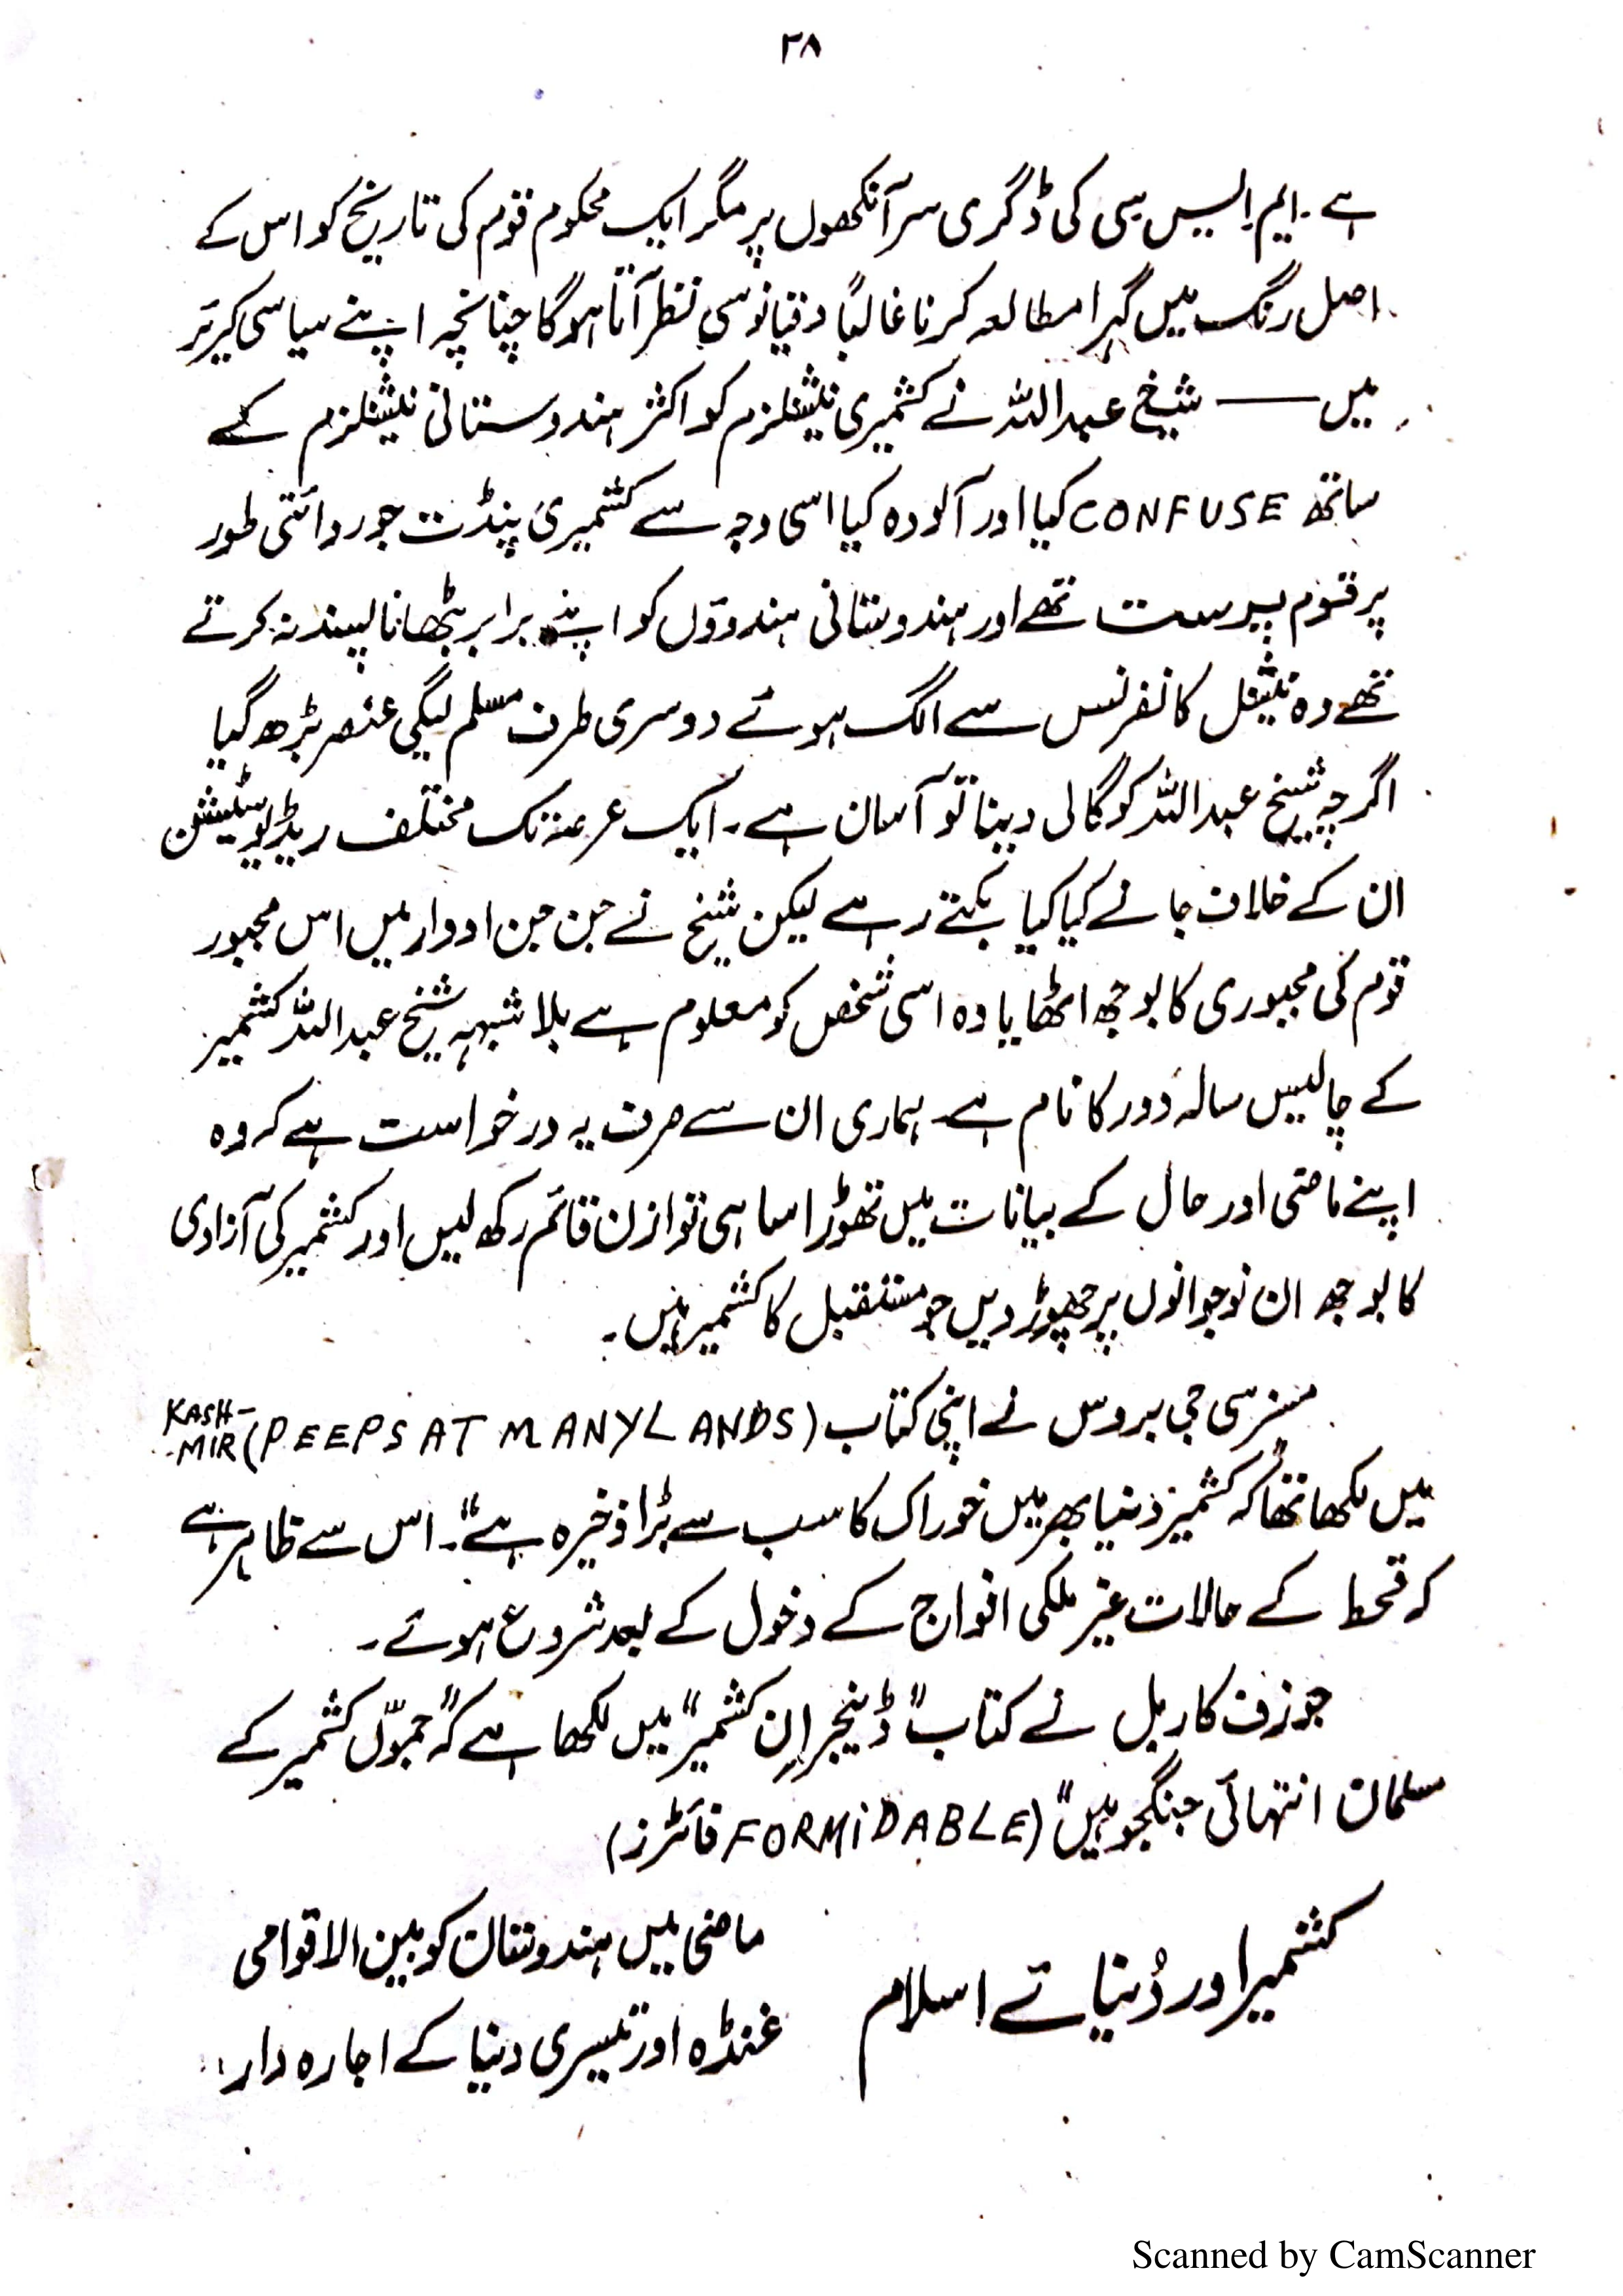 ۲۸
ہے۔ ایم۔ ایس سی کی ڈگری سر آنکھوں پر مگر ایک محکوم قوم کی تاریخ کو اس کے
اصل رنگ میں گہرا مطالعہ کرنا غالباً دقیانوسی نظر آتا ہوگا چنانچہ اپنے سیاسی کریئر
میں —— شیخ عبداللہ نے کشمیری نیشنلزم کو اکثر ہندوستانی نیشنلزم کے
ساتھ CONFUSE کیا اور آلودہ کیا اسی وجہ سے کشمیری پنڈت جو روائتی طور
پر قوم پرست تھے اور ہندوستانی ہندوؤں کو اپنے برابر بٹھانا پسند نہ کرتے
تھے وہ نیشنل کانفرنس سے الگ ہوئے دوسری طرف مسلم لیگی عنصر بڑھ گیا
اگرچہ شیخ عبداللہ کو گالی دینا تو آسان ہے۔ ایک عرصہ تک مختلف ریڈیو سٹیشن
ان کے خلاف جانے کیا کیا بکتے رہے لیکن شیخ نے جن جن ادوار میں اس مجبور
قوم کی مجبوری کا بوجھ اٹھایا وہ اسی شخص کو معلوم ہے بلا شبہہ شیخ عبداللہ کشمیر
کے چالیس سالہ دَور کا نام ہے۔ ہماری ان سے صرف یہ درخواست ہے کہ وہ
اپنے ماضی اور حال کے بیانات میں تھوڑا سا ہی توازن قائم رکھ لیں اور کشمیر کی آزادی
کا بوجھ ان نوجوانوں پر چھوڑ دیں جو مستقبل کا کشمیر ہیں۔
مسز سی جی بروس نے اپنی کتاب (PEEPS AT MANY LANDS) KASH-MIR
میں لکھا تھا کہ "کشمیر دنیا بھر میں خوراک کا سب سے بڑا ذخیرہ ہے"۔ اس سے ظاہر ہے
کہ قحط کے حالات غیر ملکی افواج کے دخول کے بعد شروع ہوئے۔
جوزف کاربل نے کتاب "ڈینجر اِن کشمیر" میں لکھا ہے کہ "جموّں کشمیر کے
مسلمان انتہائی جنگجو ہیں" (FORMiDABLE فائٹرز)
کشمیر اور دُنیائے اسلام
ماضی میں ہندوستان کو بین الاقوامی
غنڈہ اور تیسری دنیا کے اجارہ دار
Scanned by CamScanner